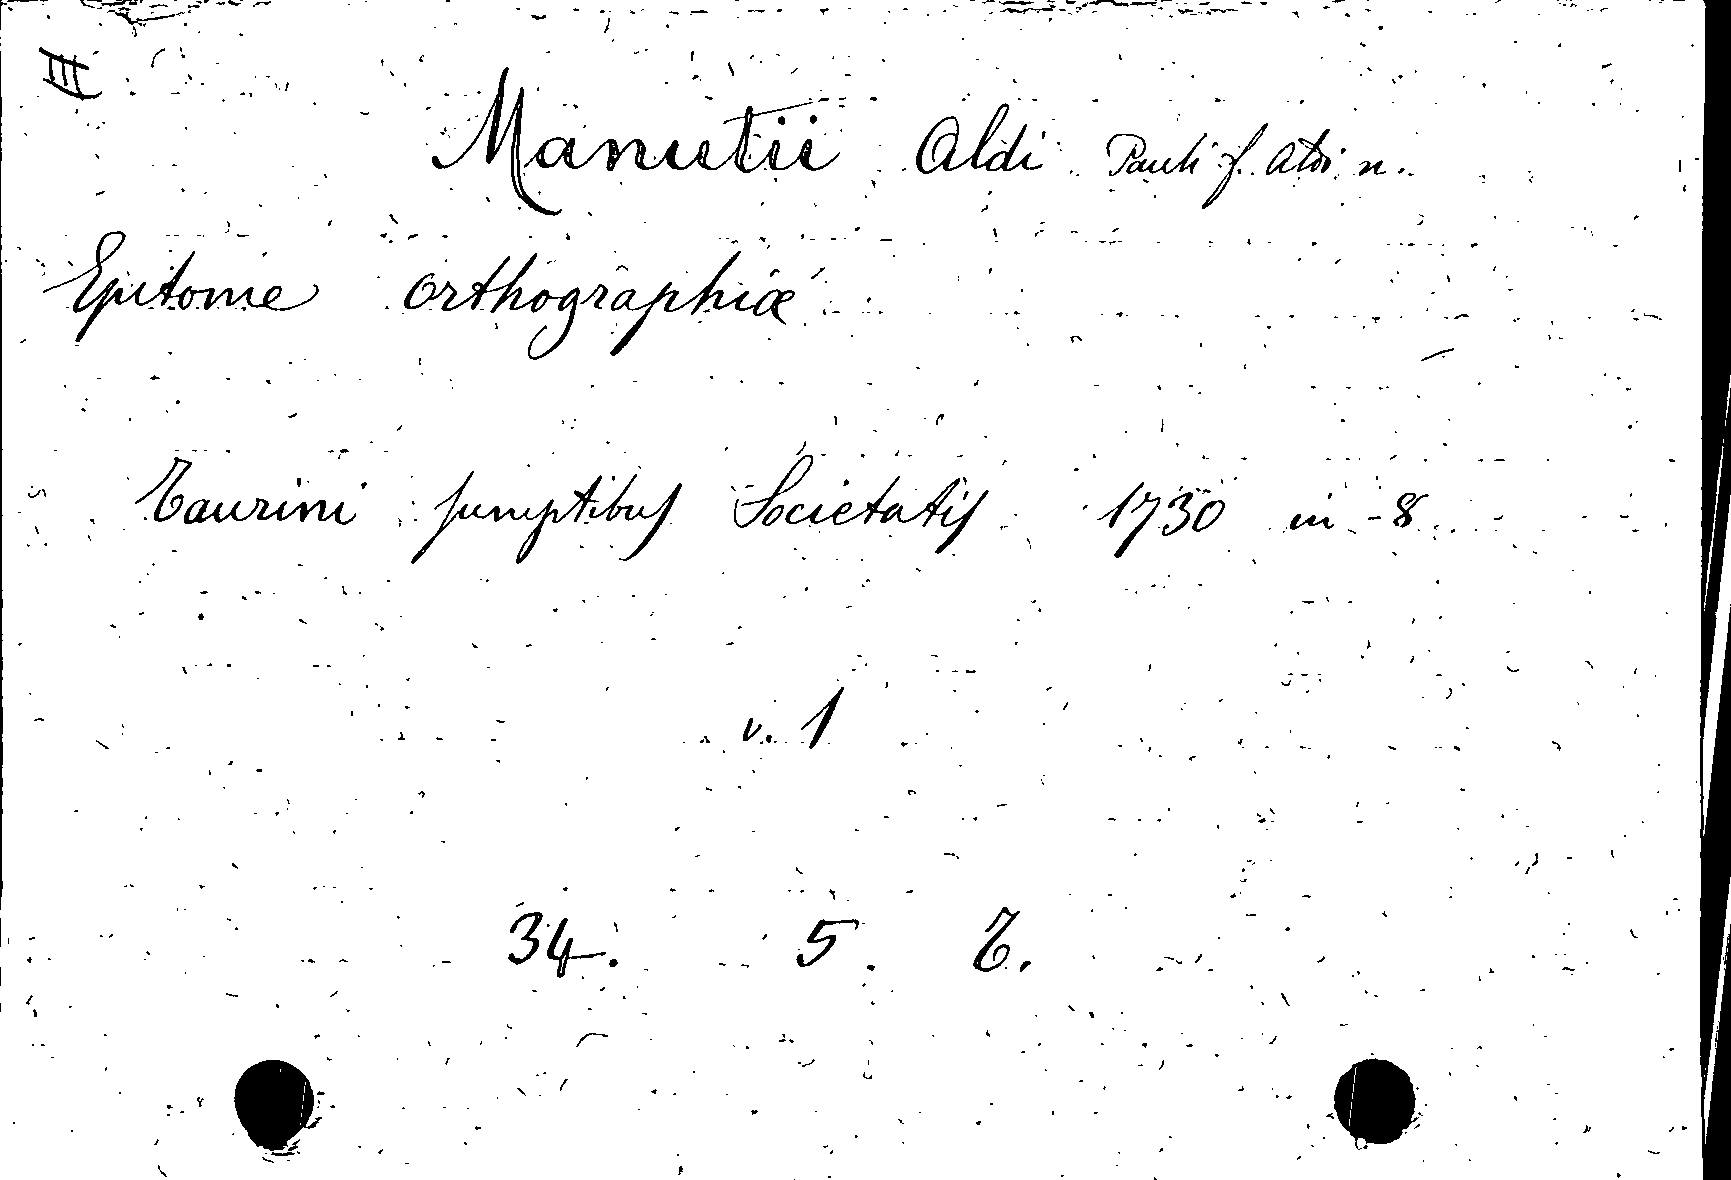 III
Manutii Aldi Pauli f. Aldi n.
Epitome orthographiæ
Taurini sumptibus Societatis 1730 in-8
v. 1
34. 5. Z.